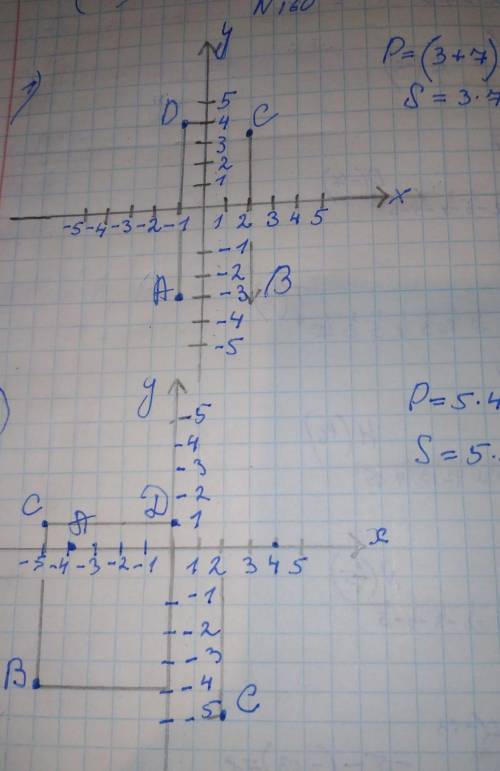 N 160
1)
y
P = (3+7)
S = 3·7
5
D 4 C
3
2
1
x
-5 -4 -3 -2 -1 1 2 3 4 5
-1
-2
A -3 B
-4
-5
y
P = 5·4
5
4
S = 5·
3
2
C A D 1
x
-5 -4 -3 -2 -1 1 2 3 4 5
-1
-2
-3
B -4
-5 C